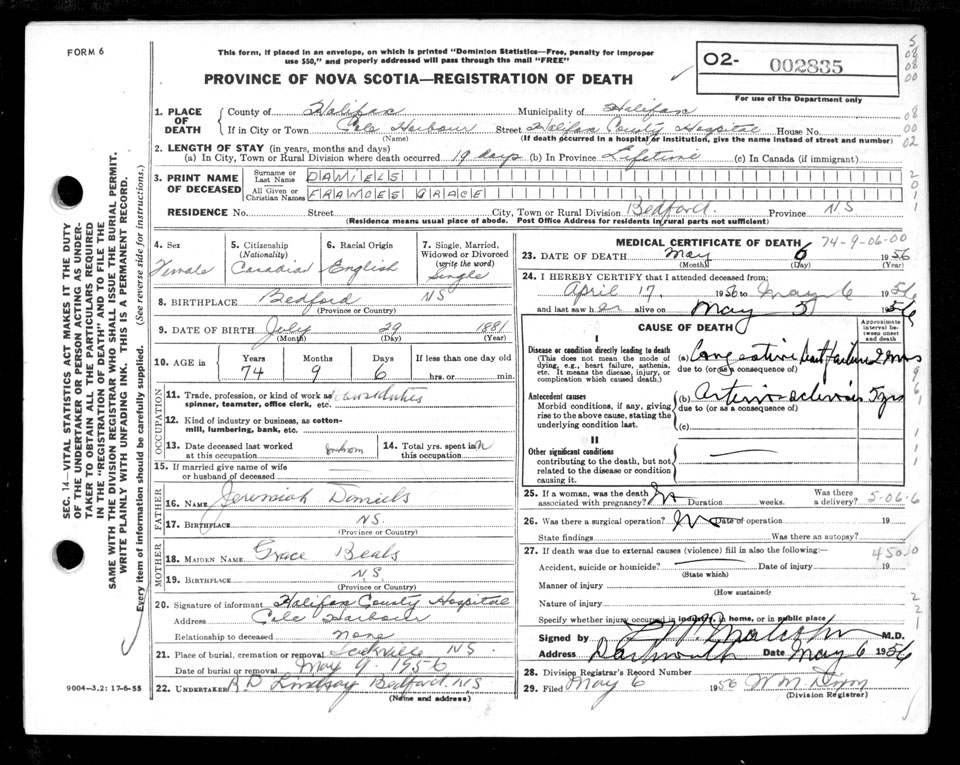 FORM 6
This form, if placed in an envelope, on which is printed "Dominion Statistics—Free, penalty for improper
use $50," and properly addressed will pass through the mail "FREE"
PROVINCE OF NOVA SCOTIA—REGISTRATION OF DEATH
O2- 002835
For use of the Department only
1. PLACE OF DEATH
County of Halifax Municipality of Halifax
If in City or Town Cole Harbour Street Halifax County Hospital House No.
(Name) (If death occurred in a hospital or institution, give the name instead of street and number)
2. LENGTH OF STAY (in years, months and days)
(a) In City, Town or Rural Division where death occurred 19 days (b) In Province Lifetime (c) In Canada (if immigrant)
3. PRINT NAME OF DECEASED
Surname or Last Name DANIELS
All Given or Christian Names FRANCES GRACE
RESIDENCE No. Street City, Town or Rural Division Bedford Province NS
(Residence means usual place of abode. Post Office Address for residents in rural parts not sufficient)
4. Sex Female
5. Citizenship (Nationality) Canadian
6. Racial Origin English
7. Single, Married, Widowed or Divorced (write the word) Single
8. BIRTHPLACE Bedford NS
(Province or Country)
9. DATE OF BIRTH July 29 1881
(Month) (Day) (Year)
10. AGE in Years Months Days If less than one day old
74 9 6 hrs. or min.
OCCUPATION
11. Trade, profession, or kind of work as
spinner, teamster, office clerk, etc.
12. Kind of industry or business, as cotton-
mill, lumbering, bank, etc.
13. Date deceased last worked
at this occupation unknown
14. Total yrs. spent in
this occupation
15. If married give name of wife
or husband of deceased
FATHER
16. NAME Jeremiah Daniels
17. BIRTHPLACE N.S.
(Province or Country)
MOTHER
18. MAIDEN NAME Grace Beals
19. BIRTHPLACE N.S.
(Province or Country)
20. Signature of informant Halifax County Hospital
Address Cole Harbour
Relationship to deceased None
21. Place of burial, cremation or removal Sackville NS.
Date of burial or removal May 9. 1956
22. UNDERTAKER Lindsay Bedford NS
(Name and address)
MEDICAL CERTIFICATE OF DEATH
74-9-06-00
23. DATE OF DEATH May 6 1956
(Month) (Day) (Year)
24. I HEREBY CERTIFY that I attended deceased from
April 17, 1956 to May 6 1956
and last saw her alive on May 5 1956
CAUSE OF DEATH
Approximate interval between onset and death
I
Disease or condition directly leading to death
(This does not mean the mode of
dying, e.g., heart failure, asthenia,
etc. It means the disease, injury, or
complication which caused death.)
(a) Congestive Heart Failure 2 mos
due to (or as a consequence of)
Antecedent causes
Morbid conditions, if any, giving
rise to the above cause, stating the
underlying condition last.
(b) Arteriosclerosis 5 yrs
due to (or as a consequence of)
(c)
II
Other significant conditions
contributing to the death, but not
related to the disease or condition
causing it.
25. If a woman, was the death
associated with pregnancy? No Duration weeks. Was there a delivery?
5-06-6
26. Was there a surgical operation? No Date of operation 19
State findings Was there an autopsy?
27. If death was due to external causes (violence) fill in also the following:—
450.0
Accident, suicide or homicide? Date of injury 19
(State which)
Manner of injury
(How sustained)
Nature of injury
Specify whether injury occurred in industry, in home, or in public place
Signed by Malcolm M.D.
Address Dartmouth Date May 6 1956
28. Division Registrar's Record Number
29. Filed May 6 1956 W M Dixon
(Division Registrar)
9004—3.2: 17-6-55
SEC. 14—VITAL STATISTICS ACT MAKES IT THE DUTY
OF THE UNDERTAKER OR PERSON ACTING AS UNDER-
TAKER TO OBTAIN ALL THE PARTICULARS REQUIRED
IN THE "REGISTRATION OF DEATH" AND TO FILE THE
SAME WITH THE DIVISION REGISTRAR WHO SHALL ISSUE THE BURIAL PERMIT.
WRITE PLAINLY WITH UNFADING INK. THIS IS A PERMANENT RECORD.
Every item of information should be carefully supplied. (See reverse side for instructions.)